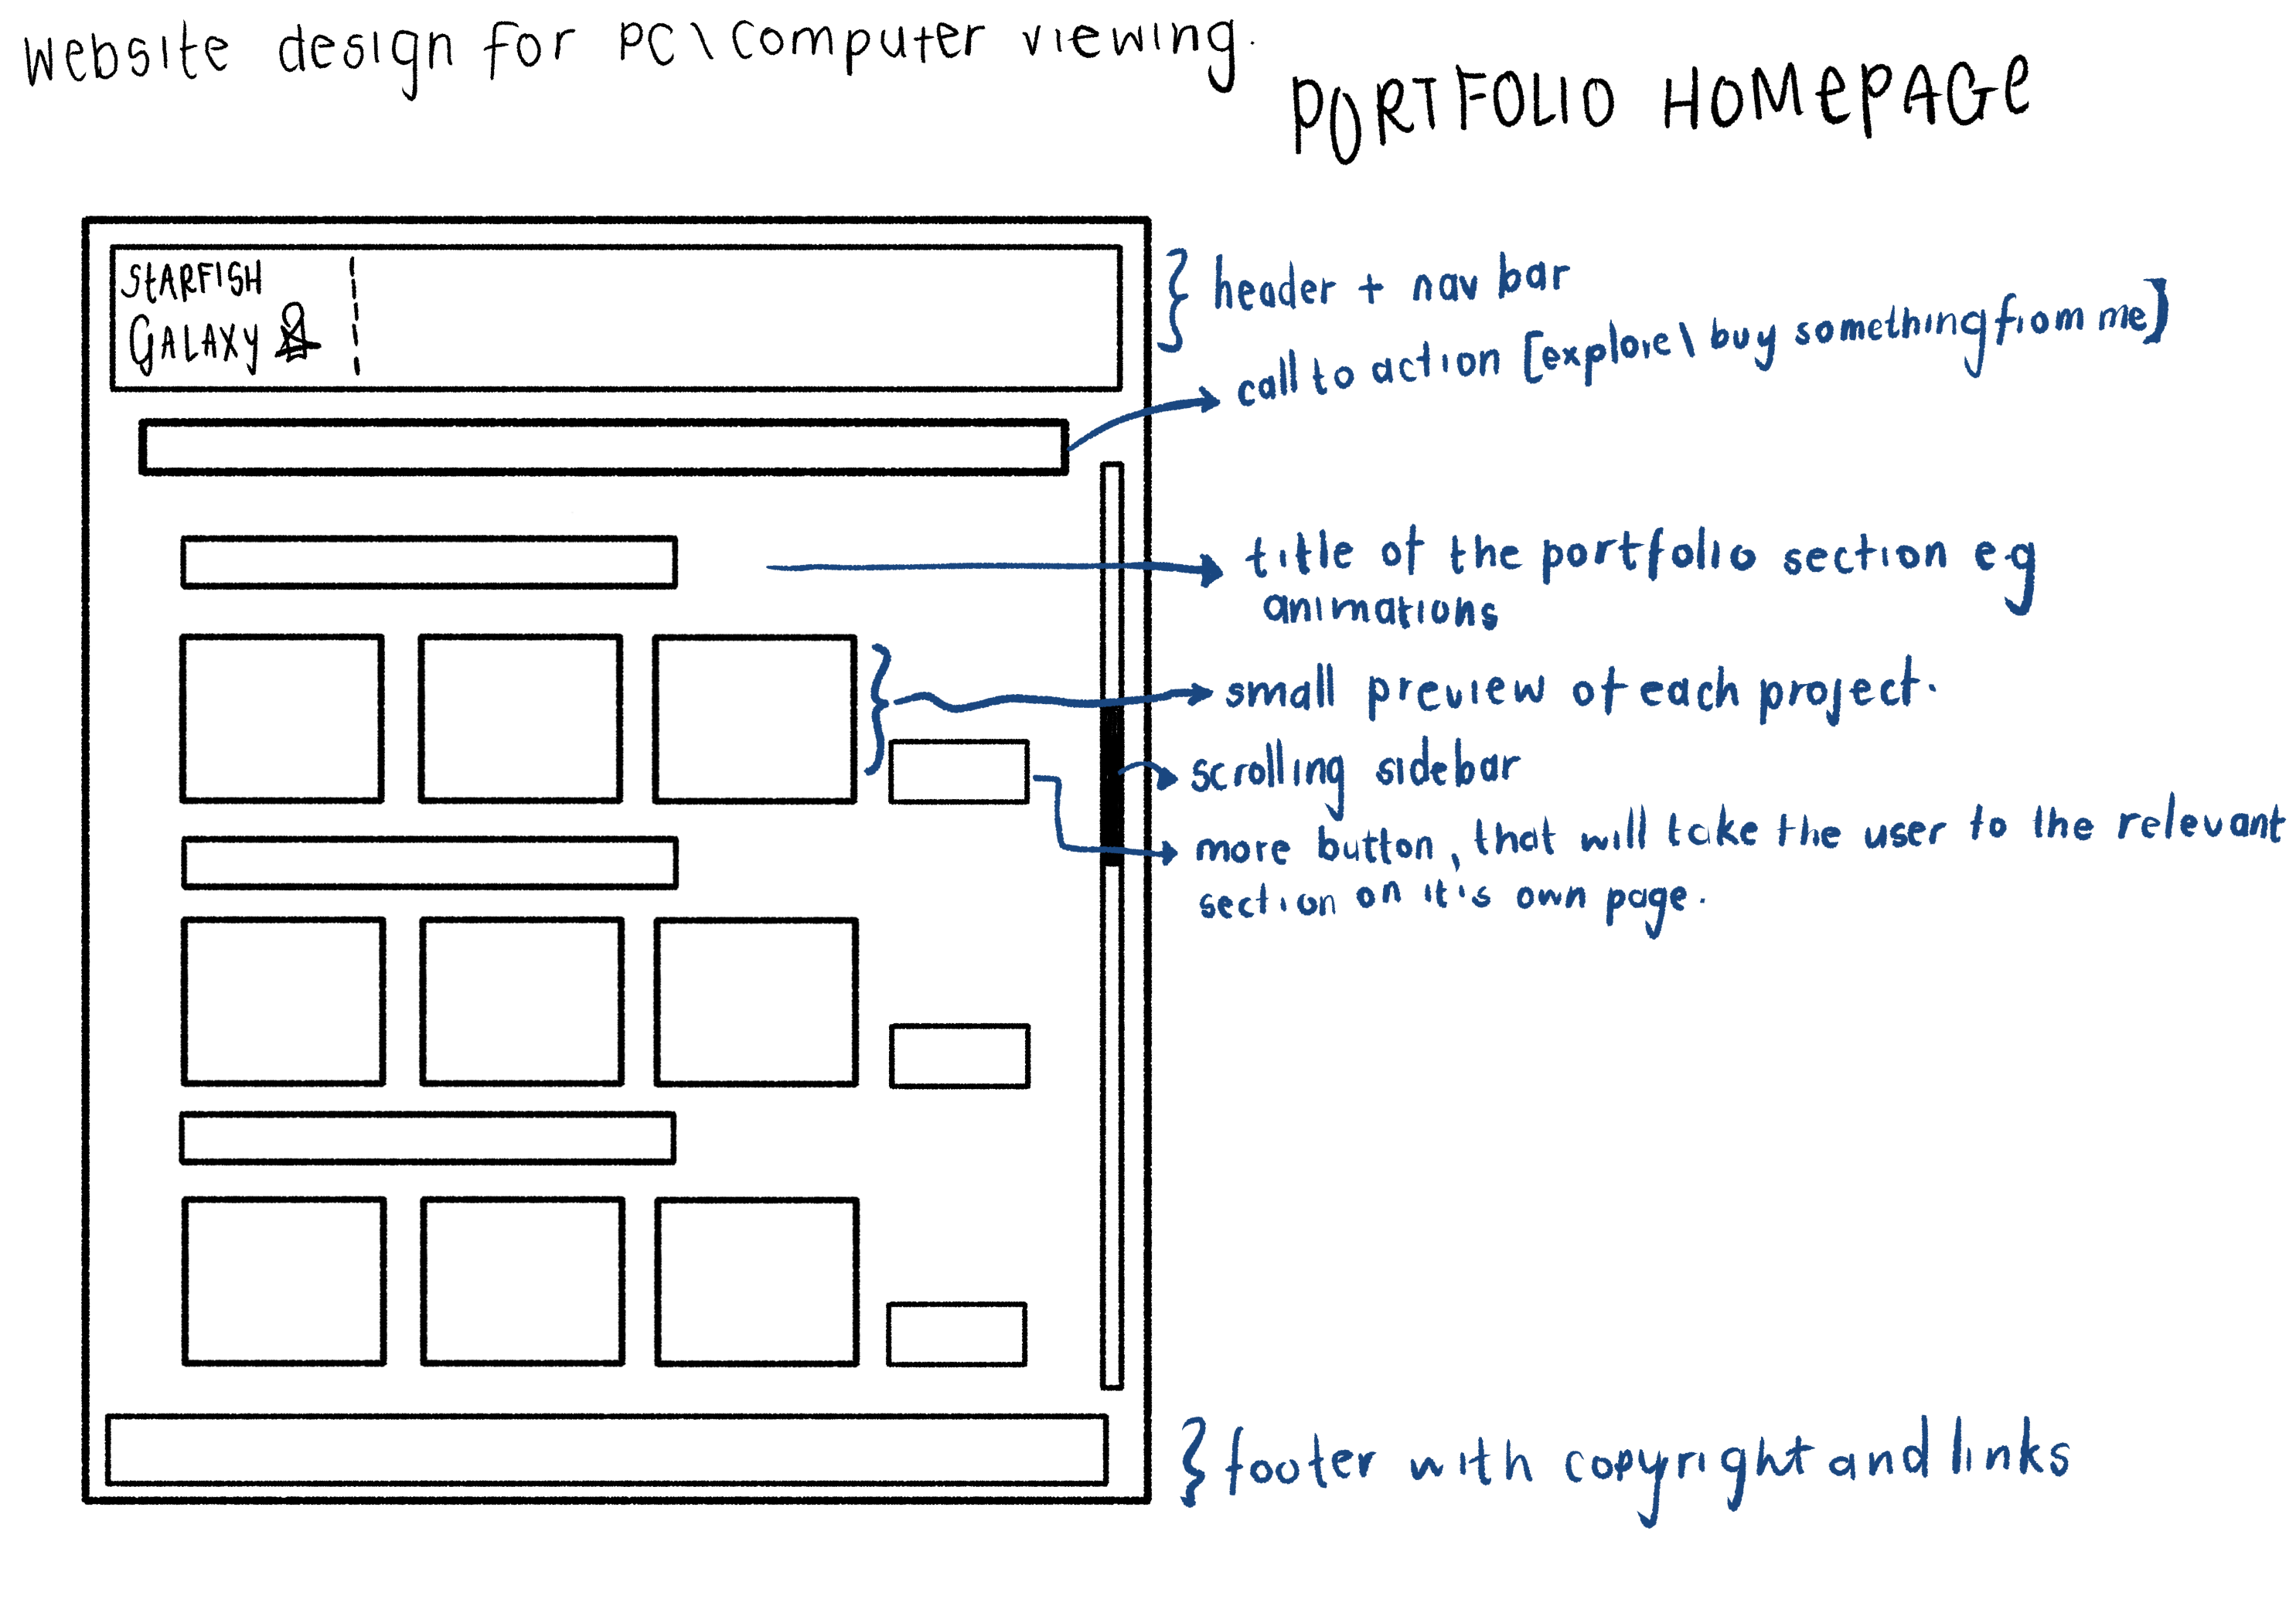 Website design for PC\Computer viewing.
PORTFOLIO HOMEPAGE
STARFISH
GALAXY
header + nav bar
call to action [explore\ buy something from me]
title of the portfolio section eg
animations
small preview of each project.
scrolling sidebar
more button, that will take the user to the relevant
section on it's own page.
footer with copyright and links